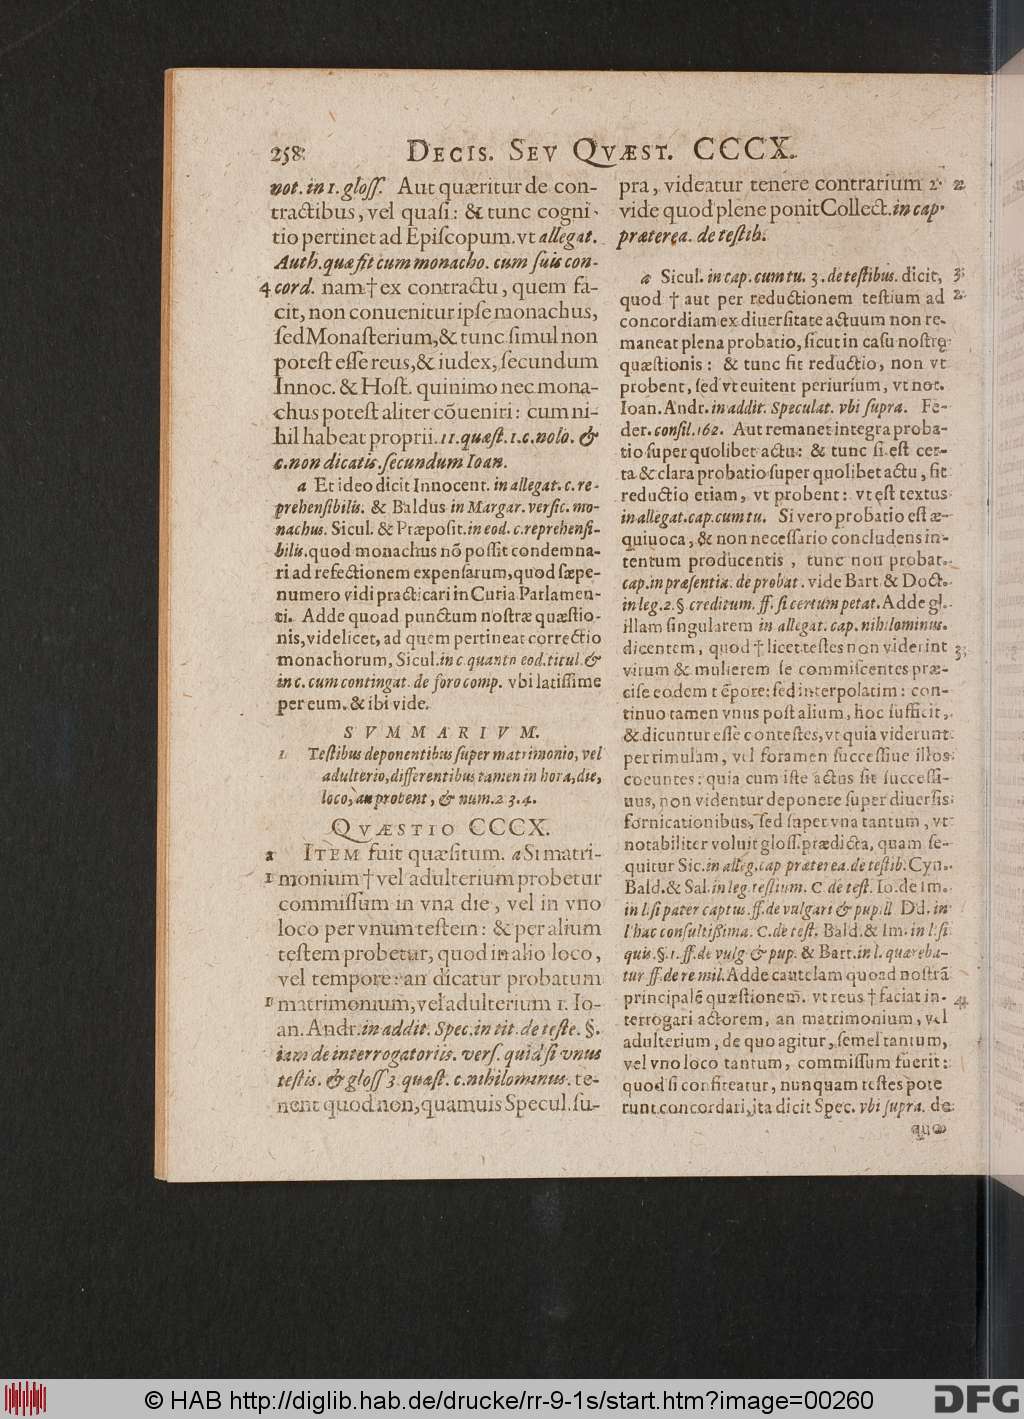 258
DECIS. SEV QVÆST. CCCX.
not. in 1. gloſſ. Aut quæritur de con-
tractibus, vel quaſi: & tunc cogni-
tio pertinet ad Epiſcopum. vt allegat.
Auth. quæ ſit cum monacho. cum ſuis con-
4 cord. nam † ex contractu, quem fa-
cit, non conuenitur ipſe monachus,
ſed Monaſterium, & tunc ſimul non
poteſt eſſe reus, & iudex, ſecundum
Innoc. & Hoſt. quinimo nec mona-
chus poteſt aliter cõueniri: cum ni-
hil habeat proprii. 11. quæſt. 1. c. nolo. &
c. non dicatis. ſecundum Ioan.
a Et ideo dicit Innocent. in allegat. c. re-
prehenſibilis. & Baldus in Margar. verſic. mo-
nachus. Sicul. & Præpoſit. in eod. c. reprehenſi-
bilis. quod monachus nõ poſſit condemna-
ri ad refectionem expenſarum, quod ſæpe-
numero vidi practicari in Curia Parlamen-
ti. Adde quoad punctum noſtræ quæſtio-
nis, videlicet, ad quem pertineat correctio
monachorum, Sicul. in c. quanto eod. titul. &
in c. cum contingat. de foro comp. vbi latiſſime
per eum. & ibi vide.
SVMMARIVM.
1 Teſtibus deponentibus ſuper matrimonio, vel
adulterio, differentibus tamen in hora, die,
loco, an probent, & num. 2 3. 4.
QVÆSTIO CCCX.
a ITEM fuit quæſitum. a Si matri-
1 monium † vel adulterium probetur
commiſſum in vna die, vel in vno
loco per vnum teſtem: & per alium
teſtem probetur, quod in alio loco,
vel tempore: an dicatur probatum
matrimonium, vel adulterium 1. Io-
an. Andr. in addit. Spec. in tit. de teſte. §.
iam de interrogatoriis. verſ. quid ſi vnus
teſtis. & gloſſ 3. quæſt. c. nihilominus. te-
nent quod non, quamuis Specul. ſu-
pra, videatur tenere contrarium 2. 22
vide quod plene ponit Collect. in cap.
præterea. de teſtib.
a Sicul. in cap. cum tu. 3. de teſtibus. dicit, 3.
quod † aut per reductionem teſtium ad 2.
concordiam ex diuerſitate actuum non re-
maneat plena probatio, ſicut in caſu noſtrę
quæſtionis: & tunc fit reductio, non vt
probent, ſed vt euitent periurium, vt not.
Ioan. Andr. in addit. Speculat. vbi ſupra. Fe-
der. conſil. 162. Aut remanet integra proba-
tio ſuper quolibet actu: & tunc ſi eſt cer-
ta & clara probatio ſuper quolibet actu, fit
reductio etiam, vt probent: vt eſt textus
in allegat. cap. cum tu. Si vero probatio eſt æ-
quiuoca, & non neceſſario concludens in-
tentum producentis, tunc non probat.
cap. in præſentia. de probat. vide Bart. & Doct.
in leg. 2. § creditum. ff. ſi certum petat. Adde gl.
illam ſingularem in allegat. cap. nihilominus.
dicentem, quod † licet teſtes non viderint 3.
virum & mulierem ſe commiſcentes præ-
ciſe eodem tẽpore: ſed interpolatim: con-
tinuo tamen vnus poſt alium, hoc ſufficit,
& dicuntur eſſe conteſtes, vt quia viderunt
per rimulam, vel foramen ſucceſſiue illos
coeuntes: quia cum iſte actus ſit ſucceſſi-
uus, non videntur deponere ſuper diuerſis
fornicationibus, ſed ſuper vna tantum, vt
notabiliter voluit gloſſ. prædicta, quam ſe-
quitur Sic. in alleg. cap præterea. de teſtib. Cyn.
Bald. & Sal. in leg. teſtium. C. de teſt. Io. de Im.
in l. ſi pater captus. ff. de vulgari & pup. ll Dd. in
l. hac conſultiſſima. C. de teſt. Bald. & Im. in l. ſi
quis. §. 1. ff. de vulg. & pup. & Bart. in l. quæreba-
tur ff. de re mil. Adde cautelam quoad noſtrã
principalẽ quæſtionem. vt reus † faciat in- 4
terrogari actorem, an matrimonium, vel
adulterium, de quo agitur, ſemel tantum,
vel vno loco tantum, commiſſum fuerit:
quod ſi confiteatur, nunquam teſtes pote
runt concordari, ita dicit Spec. vbi ſupra. de
quo
© HAB http://diglib.hab.de/drucke/rr-9-1s/start.htm?image=00260
DFG